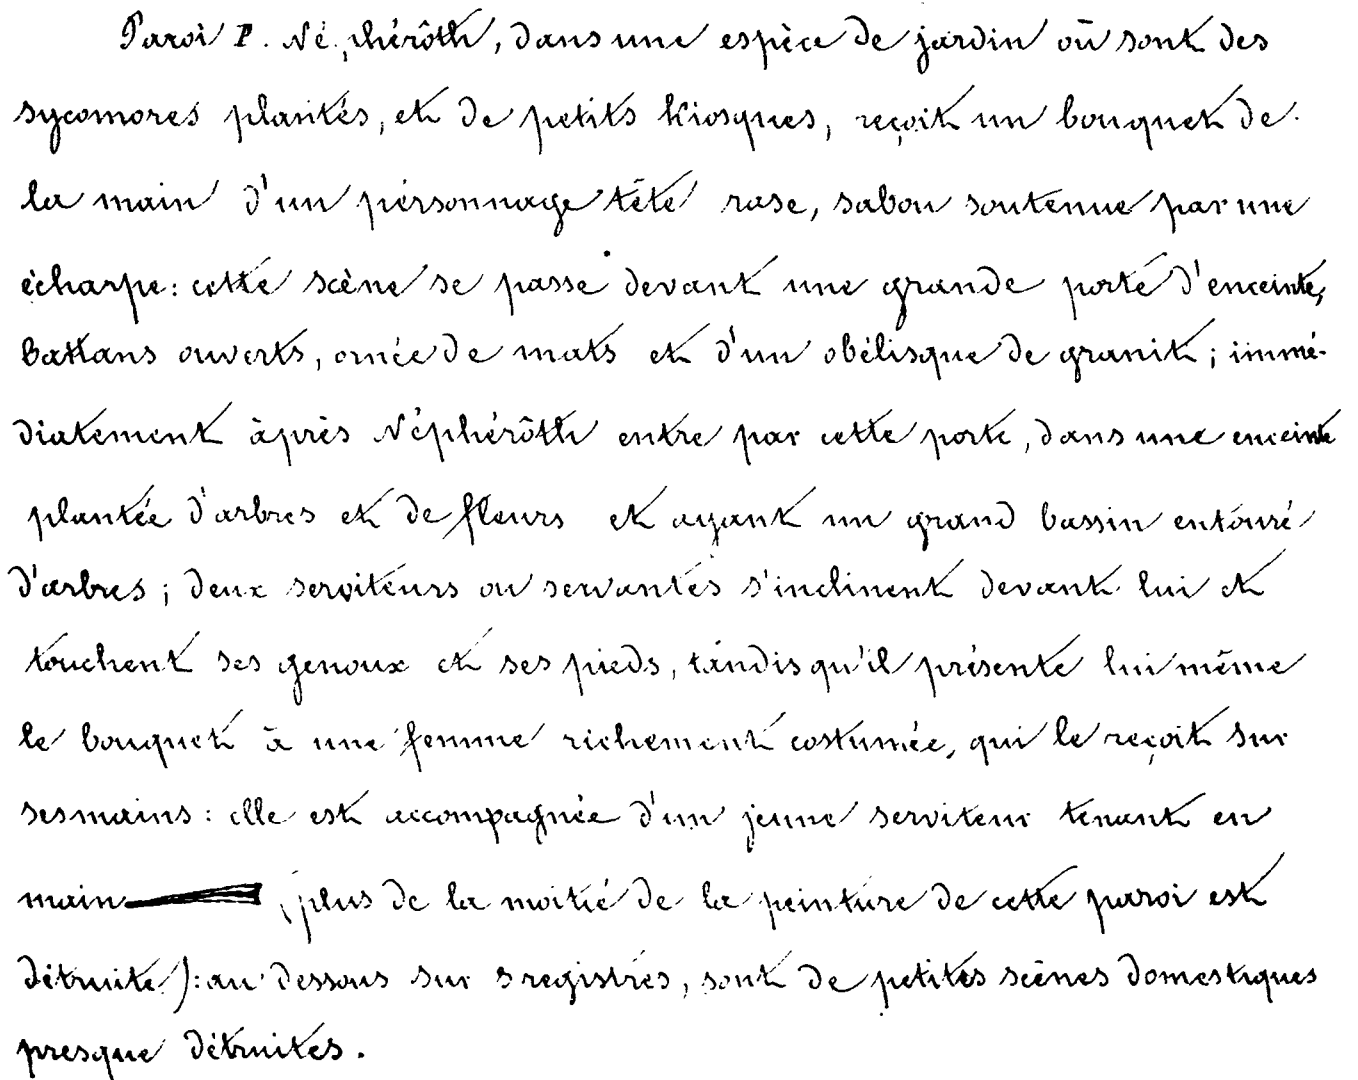 Paroi P. Néphérôth, dans une espèce de jardin où sont des
sycomores plantés, et de petits kiosques, reçoit un bouquet de
la main d'un personnage tête rase, sabou soutenue par une
écharpe: cette scène se passe devant une grande porte d'enceinte,
battans ouverts, ornée de mats et d'un obélisque de granit; immé-
diatement après Néphérôth entre par cette porte, dans une enceinte
plantée d'arbres et de fleurs et ayant un grand bassin entouré
d'arbres; deux serviteurs ou servantes s'inclinent devant lui et
touchent ses genoux et ses pieds, tandis qu'il présente lui même
le bouquet à une femme richement costumée, qui le reçoit sur
ses mains: elle est accompagnée d'un jeune serviteur tenant en
main (plus de la moitié de la peinture de cette paroi est
détruite): au dessous sur 3 registres, sont de petites scènes domestiques
presque détruites.